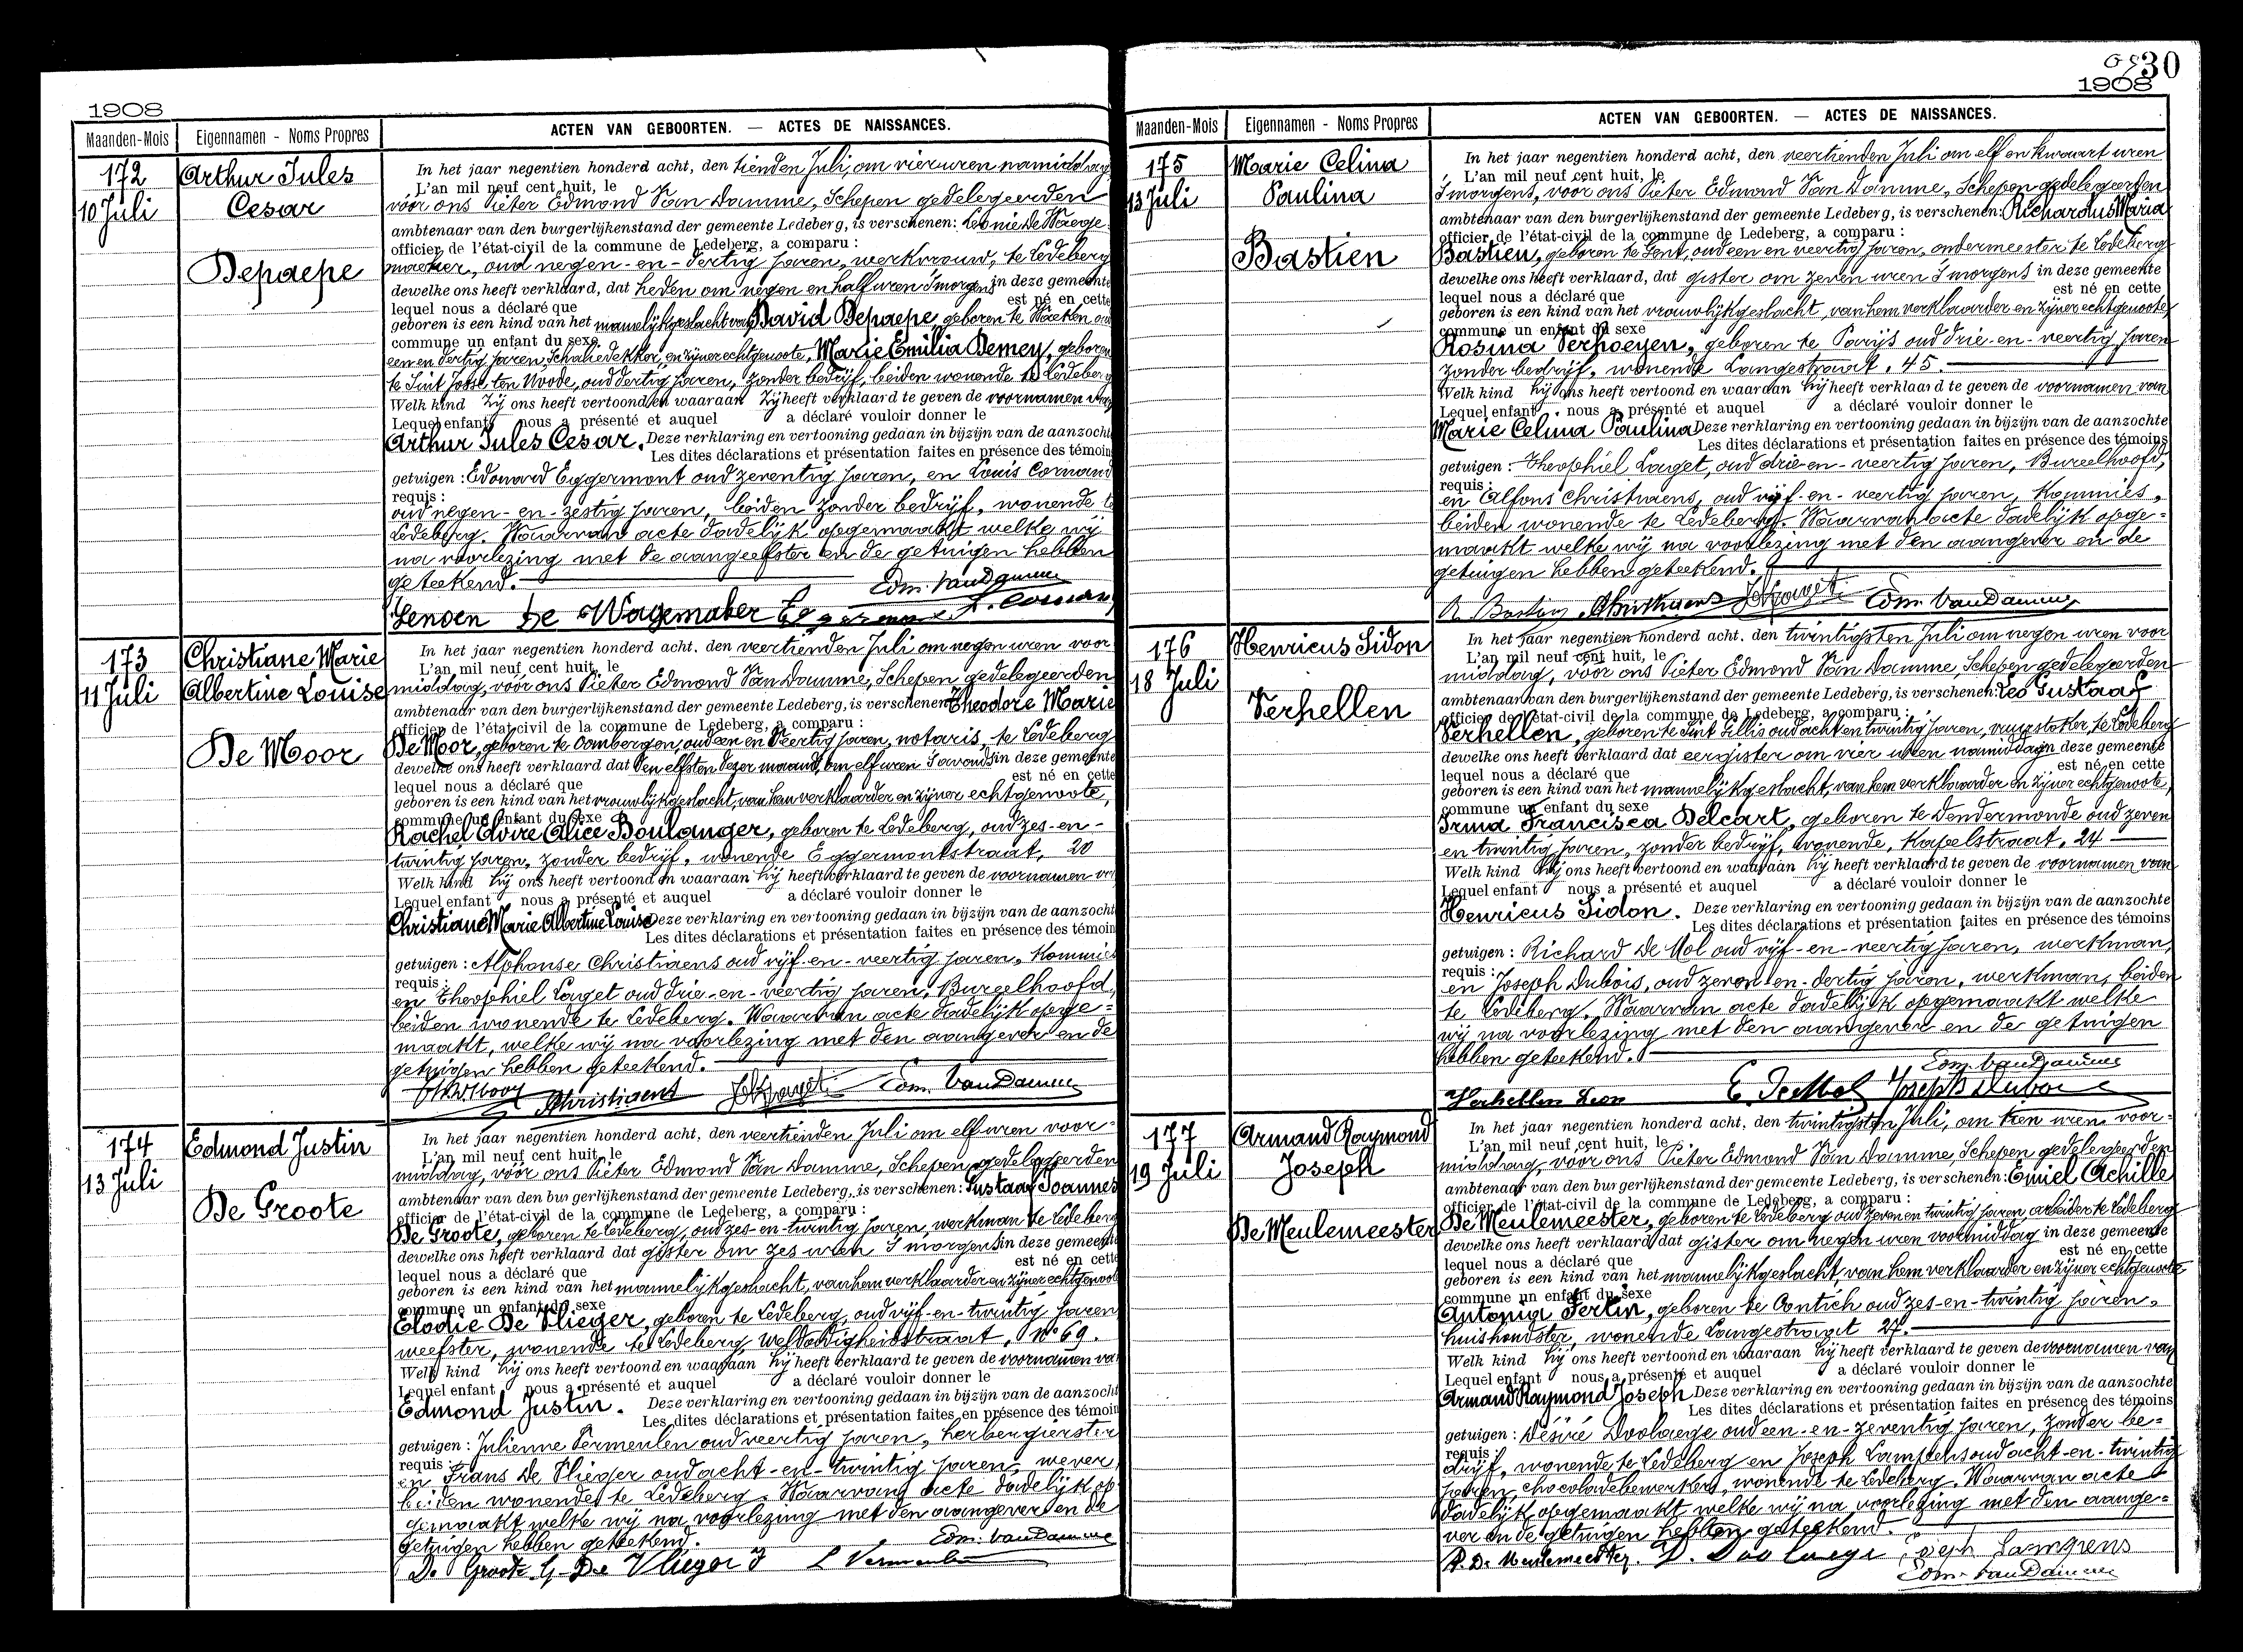 1908
Maanden-Mois Eigennamen - Noms Propres ACTEN VAN GEBOORTEN. — ACTES DE NAISSANCES.
172 Arthur Jules
10 Juli Cesar
Depaepe
In het jaar negentien honderd acht, den tienden Juli, om vier uren namiddag
L'an mil neuf cent huit, le
vóór ons Pieter Edmond Van Damme, Schepen gedelegeerden
ambtenaar van den burgerlijkenstand der gemeente Ledeberg, is verschenen: Leonie De Waege-
officier de l'état-civil de la commune de Ledeberg, a comparu :
maeker, oud negen-en-dertig jaren, werkvrouw, te Ledeberg
dewelke ons heeft verklaard, dat heden om negen en half uren 's morgens in deze gemeente
lequel nous a déclaré que est né en cette
geboren is een kind van het mannelijk geslacht van David Depaepe geboren te
commune un enfant du sexe
een en dertig jaren, Schaliedekker, en zijner echtgenoote, Marie Emilia Demey, geboren
te Sint Josse ten Noode, oud dertig jaren, zonder bedrijf, beiden wonende te Ledeberg
Welk kind zij ons heeft vertoond en waaraan zij heeft verklaard te geven de voornamen van
Lequel enfant nous a présenté et auquel a déclaré vouloir donner le
Arthur Jules Cesar. Deze verklaring en vertooning gedaan in bijzijn van de aanzocht
Les dites déclarations et présentation faites en présence des témoin
getuigen : Edouard Eggermont oud zeventig jaren, en Louis
requis :
oud negen-en-zestig jaren, beiden zonder bedrijf, wonende te
Ledeberg. Waarvan acte dadelijk opgemaakt welke wij
na voorlezing met de aangeefster en de getuigen hebben
geteekend.
Edm. Van Damme
De Wagemaker
173 Christiane Marie
11 Juli Albertine Louise
De Moor
In het jaar negentien honderd acht, den veertienden Juli om negen uren voor-
L'an mil neuf cent huit, le
middag, vóór ons Pieter Edmond Van Damme, Schepen gedelegeerden
ambtenaar van den burgerlijkenstand der gemeente Ledeberg, is verschenen: Theodore Marie
officier de l'état-civil de la commune de Ledeberg, a comparu :
De Moor, geboren te Oombergen, oud een en veertig jaren, notaris, te Ledeberg
dewelke ons heeft verklaard dat den elfsten dezer maand, om elf uren 's avonds in deze gemeente
lequel nous a déclaré que est né en cette
geboren is een kind van het vrouwlijk geslacht, van hem verklaarder en zijner echtgenoote,
commune un enfant du sexe
Rachel Elvire Alice Boulanger, geboren te Ledeberg, oud zes-en-
twintig jaren, zonder bedrijf, wonende Eggermontstraat, 20
Welk kind hij ons heeft vertoond en waaraan hij heeft verklaard te geven de voornamen van
Lequel enfant nous a présenté et auquel a déclaré vouloir donner le
Christiane Marie Albertine Louise Deze verklaring en vertooning gedaan in bijzijn van de aanzocht
Les dites déclarations et présentation faites en présence des témoin
getuigen : Alphonse Christiaens oud vijf-en-veertig jaren, Kommies
requis :
en Theophiel Laget oud drie-en-veertig jaren, Bureelhoofd,
beiden wonende te Ledeberg. Waarvan acte dadelijk opge-
maakt, welke wij na voorlezing met den aangever en de
getuigen hebben geteekend.
Christiaens Edm. Van Damme
174 Edmond Justin
13 Juli
De Groote
In het jaar negentien honderd acht, den veertienden Juli om elf uren voor-
L'an mil neuf cent huit, le
middag, vóór ons Pieter Edmond Van Damme, Schepen gedelegeerden
ambtenaar van den burgerlijkenstand der gemeente Ledeberg, is verschenen: Gustaaf Joannes
officier de l'état-civil de la commune de Ledeberg, a comparu :
De Groote, geboren te Ledeberg, oud zes-en-twintig jaren, werkman te Ledeberg
dewelke ons heeft verklaard dat gister om zes uren 's morgens in deze gemeente
lequel nous a déclaré que est né en cette
geboren is een kind van het mannelijk geslacht, van hem verklaarder en zijner echtgenoote
commune un enfant du sexe
Elodie De Vlieger, geboren te Ledeberg, oud vijf-en-twintig jaren
weefster, wonende te Ledeberg, Weldadigheidstraat, No 69.
Welk kind hij ons heeft vertoond en waaraan hij heeft verklaard te geven de voornamen van
Lequel enfant nous a présenté et auquel a déclaré vouloir donner le
Edmond Justin. Deze verklaring en vertooning gedaan in bijzijn van de aanzocht
Les dites déclarations et présentation faites en présence des témoin
getuigen : Julienne Vermeulen oud veertig jaren, herbergierster
requis :
en Frans De Vlieger oud acht-en-twintig jaren, wever,
beiden wonende te Ledeberg. Waarvan acte dadelijk op
gemaakt welke wij na voorlezing met den aangever en de
getuigen hebben geteekend.
Edm. Van Damme
De Groote G. De Vlieger F
30
1908
Maanden-Mois Eigennamen - Noms Propres ACTEN VAN GEBOORTEN. — ACTES DE NAISSANCES.
175 Marie Celina
13 Juli Paulina
Bastien
In het jaar negentien honderd acht, den veertienden Juli om elf en kwaart uren
L'an mil neuf cent huit, le
's morgens, vóór ons Pieter Edmond Van Damme, Schepen gedelegeerden
ambtenaar van den burgerlijkenstand der gemeente Ledeberg, is verschenen: Richardus Maria
officier de l'état-civil de la commune de Ledeberg, a comparu :
Bastien, geboren te Gent, oud een en veertig jaren, ondermeester te Ledeberg
dewelke ons heeft verklaard, dat gister om zeven uren 's morgens in deze gemeente
lequel nous a déclaré que est né en cette
geboren is een kind van het vrouwlijk geslacht, van hem verklaarder en zijner echtgenoote
commune un enfant du sexe
Rosina Verhoeyen, geboren te Parijs oud drie-en-veertig jaren
zonder bedrijf, wonende Langestraat, 45.
Welk kind hij ons heeft vertoond en waaraan hij heeft verklaard te geven de voornamen van
Lequel enfant nous a présenté et auquel a déclaré vouloir donner le
Marie Celina Paulina Deze verklaring en vertooning gedaan in bijzijn van de aanzochte
Les dites déclarations et présentation faites en présence des témoins
getuigen : Theophiel Laget, oud drie-en-veertig jaren, Bureelhoofd,
requis :
en Alfons Christiaens, oud vijf-en-veertig jaren, Kommies,
beiden wonende te Ledeberg. Waarvan acte dadelijk opge-
maakt welke wij na voorlezing met den aangever en de
getuigen hebben geteekend.
Christiaens Edm. Van Damme
176 Henricus Sidon
18 Juli
Verhellen
In het jaar negentien honderd acht, den twintigsten Juli om negen uren voor
L'an mil neuf cent huit, le
middag, vóór ons Pieter Edmond Van Damme, Schepen gedelegeerden
ambtenaar van den burgerlijkenstand der gemeente Ledeberg, is verschenen: Leo Gustaaf
officier de l'état-civil de la commune de Ledeberg, a comparu :
Verhellen, geboren te Sint Gillis oud acht en twintig jaren, vuurstoker, te Ledeberg
dewelke ons heeft verklaard dat eergister om vier uren namiddag in deze gemeente
lequel nous a déclaré que est né en cette
geboren is een kind van het mannelijk geslacht, van hem verklaarder en zijner echtgenoote,
commune un enfant du sexe
Irma Francisca Delcart, geboren te Dendermonde oud zeven
en twintig jaren, zonder bedrijf, wonende, Kapelstraat, 24
Welk kind hij ons heeft vertoond en waaraan hij heeft verklaard te geven de voornamen van
Lequel enfant nous a présenté et auquel a déclaré vouloir donner le
Henricus Sidon. Deze verklaring en vertooning gedaan in bijzijn van de aanzochte
Les dites déclarations et présentation faites en présence des témoins
getuigen : Richard De Mol oud vijf-en-veertig jaren, werkman,
requis :
en Joseph Dubois, oud zeven-en-dertig jaren, werkman, beiden
te Ledeberg. Waarvan acte dadelijk opgemaakt welke
wij na voorlezing met den aangever en de getuigen
hebben geteekend.
Edm. Van Damme
Verhellen Leon De Mol Joseph Dubois
177 Armand Raymond
19 Juli Joseph
De Meulemeester
In het jaar negentien honderd acht, den twintigsten Juli, om tien uren voor-
L'an mil neuf cent huit, le
middag, vóór ons Pieter Edmond Van Damme, Schepen gedelegeerden
ambtenaar van den burgerlijkenstand der gemeente Ledeberg, is verschenen: Emiel Achille
officier de l'état-civil de la commune de Ledeberg, a comparu :
De Meulemeester, geboren te Ledeberg oud zeven en twintig jaren, arbeider te Ledeberg
dewelke ons heeft verklaard dat gister om negen uren voormiddag in deze gemeente
lequel nous a déclaré que est né en cette
geboren is een kind van het mannelijk geslacht, van hem verklaarder en zijner echtgenoote
commune un enfant du sexe
Antonia Fertin, geboren te Contich oud zes-en-twintig jaren,
huishoudster, wonende Langestraat 27.
Welk kind hij ons heeft vertoond en waaraan hij heeft verklaard te geven de voornamen van
Lequel enfant nous a présenté et auquel a déclaré vouloir donner le
Armand Raymond Joseph Deze verklaring en vertooning gedaan in bijzijn van de aanzochte
Les dites déclarations et présentation faites en présence des témoins
getuigen : Désiré Doolaege oud een-en-zeventig jaren, zonder be-
requis :
drijf, wonende te Ledeberg en Joseph Lampens oud acht-en-twintig
jaren, chocoladebewerker, wonende te Ledeberg. Waarvan acte
dadelijk opgemaakt welke wij na voorlezing met den aange-
ver en de getuigen hebben geteekend.
De Meulemeester. D. Doolaege Joseph Lampens
Edm. Van Damme